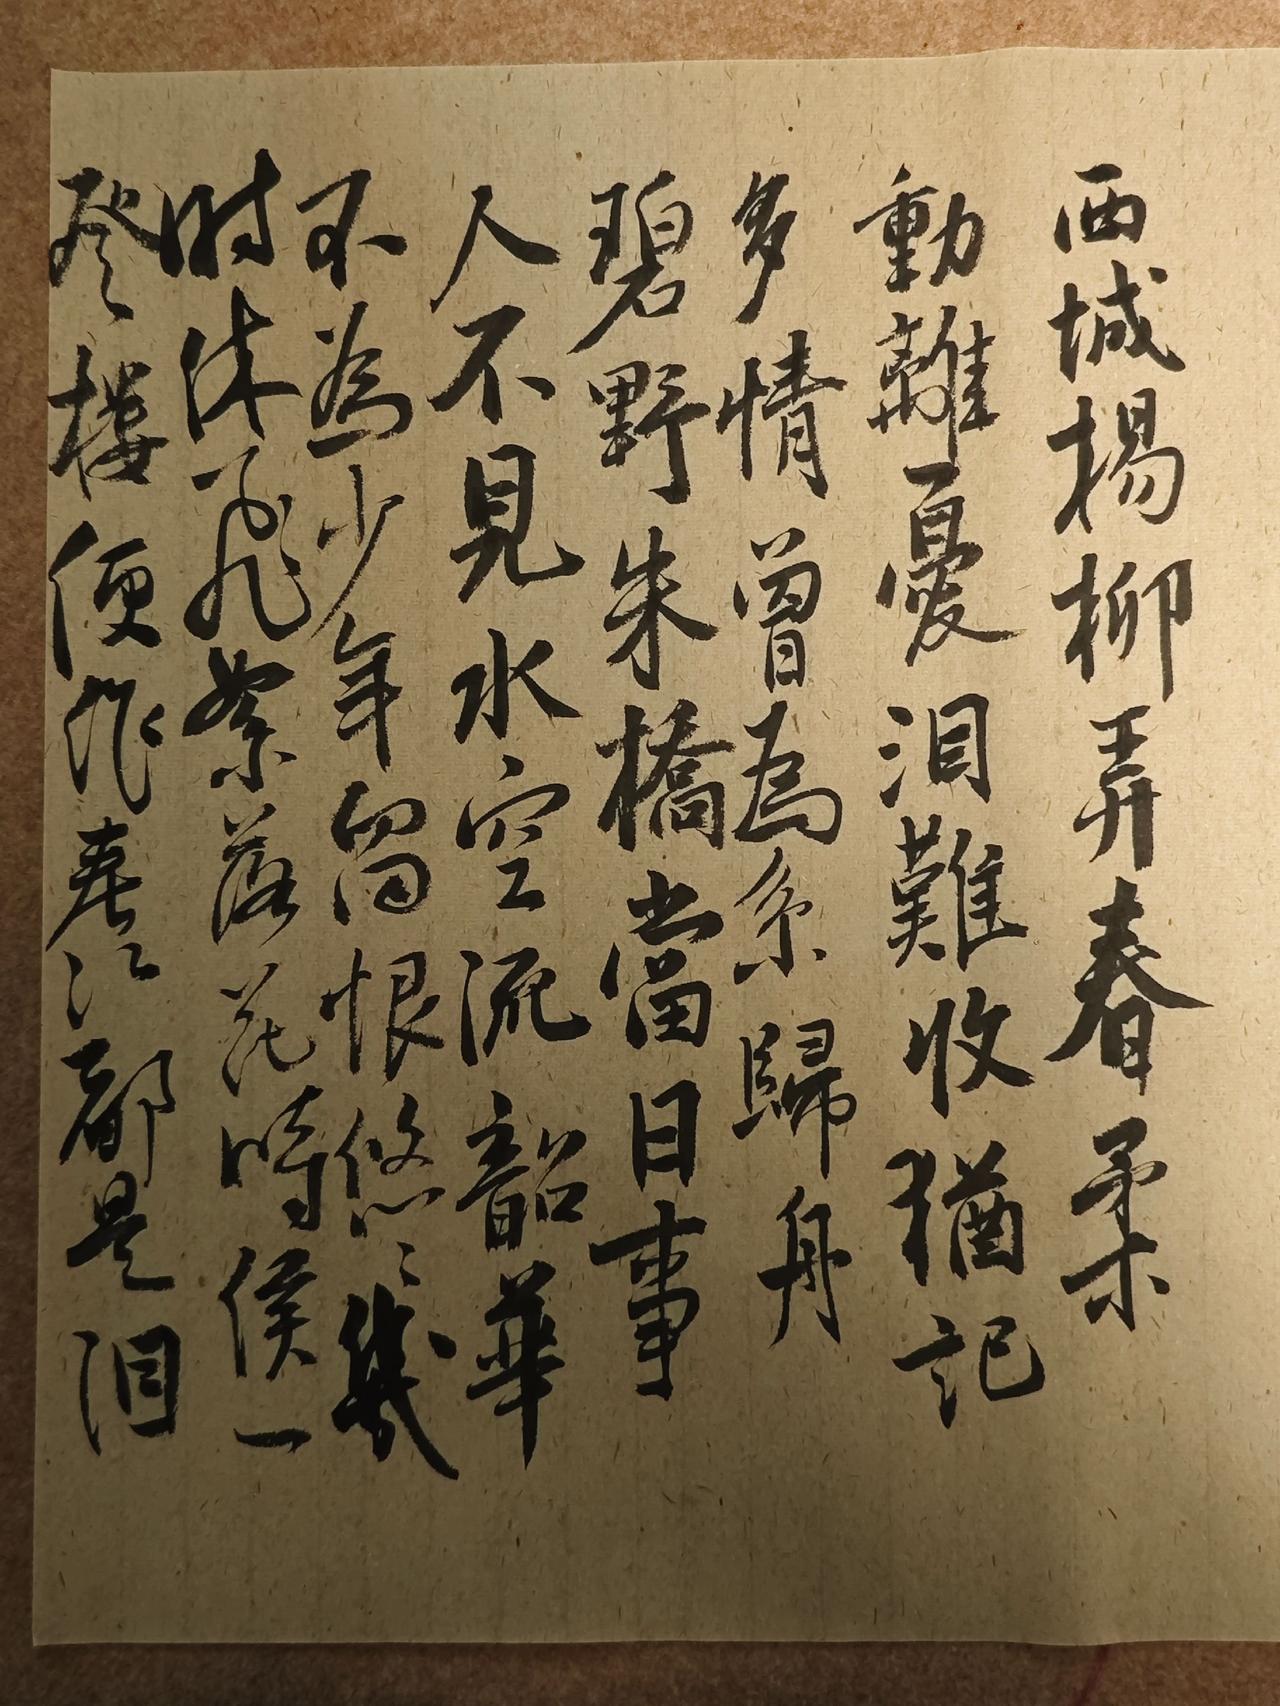 西城楊柳弄春柔
動離憂泪難收猶記
多情曾為系歸舟
碧野朱橋當日事
人不見水空流韶華
不為少年留恨悠〻幾
时休飛絮落花時候一
登樓便作春江都是泪